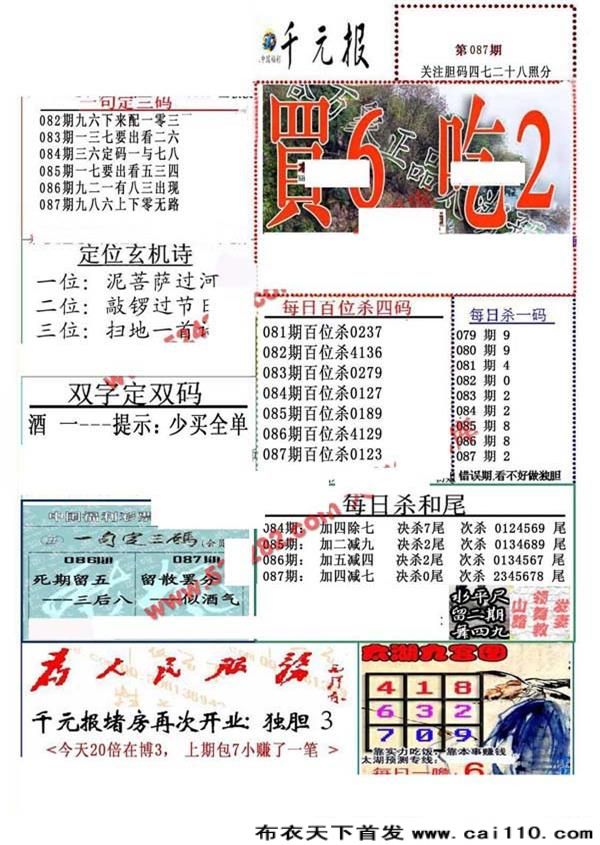 千元报
第087期
关注胆码四七二十八照分
買6吃2
一句定三码
082期九六下来配一零三
083期一三七要出看二六
084期三六定码一与七八
085期一七要出看五三四
086期九二一有八三出现
087期九八六上下零无路
定位玄机诗
一位：泥菩萨过河
二位：敲锣过节日
三位：扫地一首
每日百位杀四码
081期百位杀0237
082期百位杀4136
083期百位杀0279
084期百位杀0127
085期百位杀0189
086期百位杀4129
087期百位杀0123
每日杀一码
079 期 9
080 期 9
081 期 4
082 期 0
083 期 2
084 期 2
085 期 8
086 期 8
087 期 2
错误期,看不好做独胆
双字定双码
酒 一---提示：少买全单
每日杀和尾
J84期： 加四除七 决杀7尾 次杀 0124569 尾
085期： 加二减九 决杀2尾 次杀 0134689 尾
086期： 加五减四 决杀2尾 次杀 0134567 尾
087期： 加四减七 决杀0尾 次杀 2345678 尾
中国福利彩票
一句定三码
086期 087期
死期留五 留散罢分
---三后八 ---似酒气
为人民服务
千元报堵房再次开业：独胆 3
<今天20倍在博3， 上期包7小赚了一笔 >
太湖九宫图
4 1 8
6 3 2
7 0 9
靠实力吃饭，靠本事赚钱
太湖预测专线：
每日一胆 6
布衣天下首发 www.cai110.com